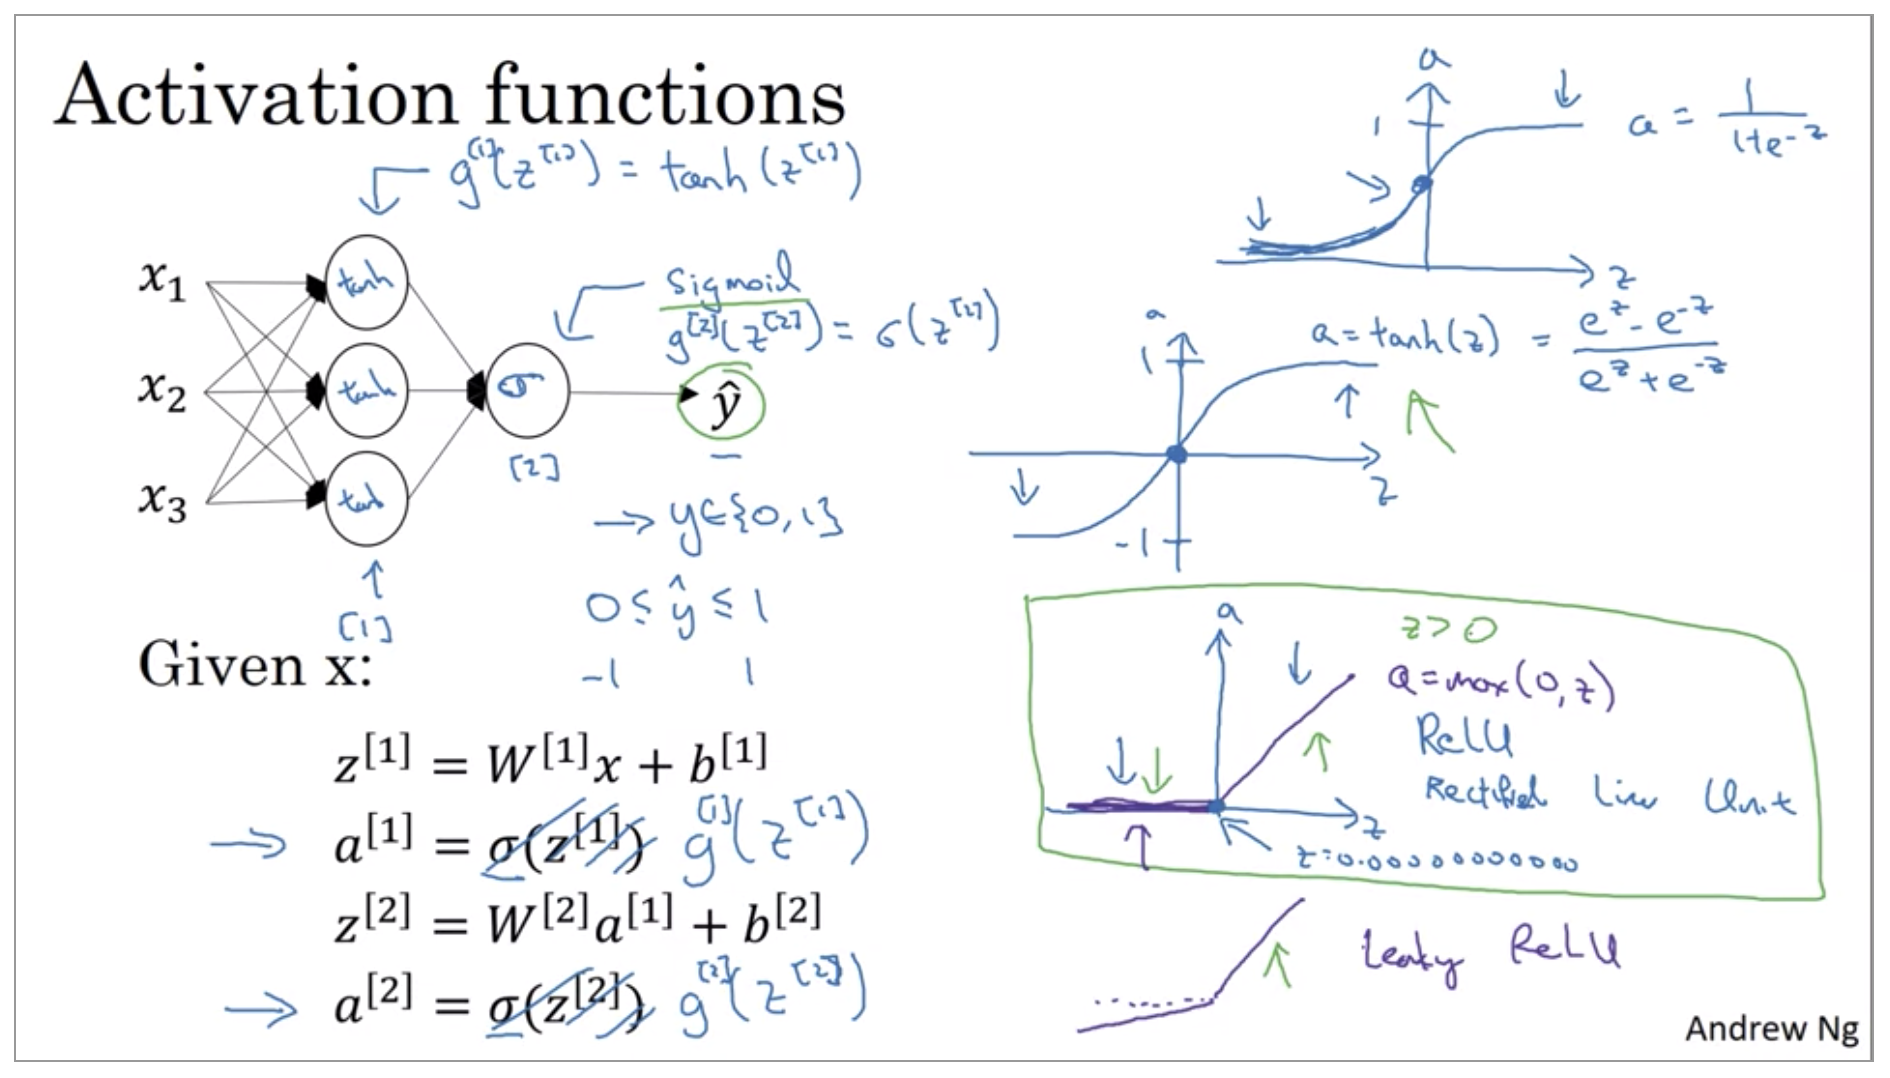 Activation functions
g^[1](z^[1]) = tanh(z^[1])
x₁
x₂
x₃
tanh
tanh
tanh
[1]
sigmoid
g^[2](z^[2]) = σ(z^[2])
σ
[2]
ŷ
→ y∈{0,1}
0 ≤ ŷ ≤ 1
-1 1
Given x:
z^[1] = W^[1]x + b^[1]
⇒ a^[1] = σ(z^[1]) g^[1](z^[1])
z^[2] = W^[2]a^[1] + b^[2]
⇒ a^[2] = σ(z^[2]) g^[2](z^[2])
a
1
a = 1/(1+e^-z)
z
a
1
a = tanh(z) = (e^z - e^-z)/(e^z + e^-z)
z
-1
a
z > 0
a = max(0,z)
ReLU
Rectified Linear Unit
z
z=0.00000000000
Leaky ReLU
Andrew Ng